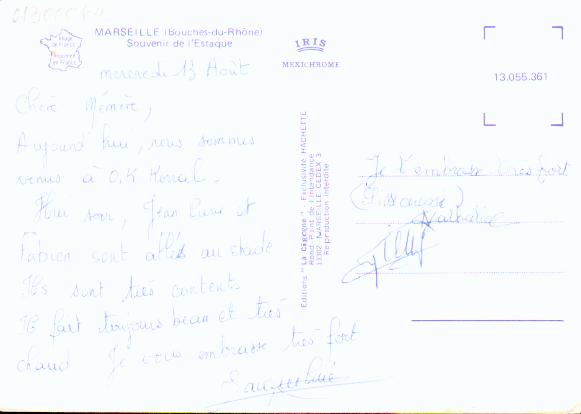 MARSEILLE (Bouches-du-Rhône)
Souvenir de l'Estaque
IRIS
MEXICHROME
13.055.361
mercredi 13 Août
Chère Mémère,
Aujourd'hui, nous sommes
venus à O.K Korral.
Hier soir, Jean Pierre et
Fabien sont allés au stade
Ils sont très contents
Il fait toujours beau et très
chaud Je vous embrasse très fort
Jacqueline
Editions "La Cigogne" - Exclusivité HACHETTE
Rond Point de l'Intendance
MARSEILLE CEDEX 3
Reproduction interdite
Je t'embrasse très fort
Nathalie